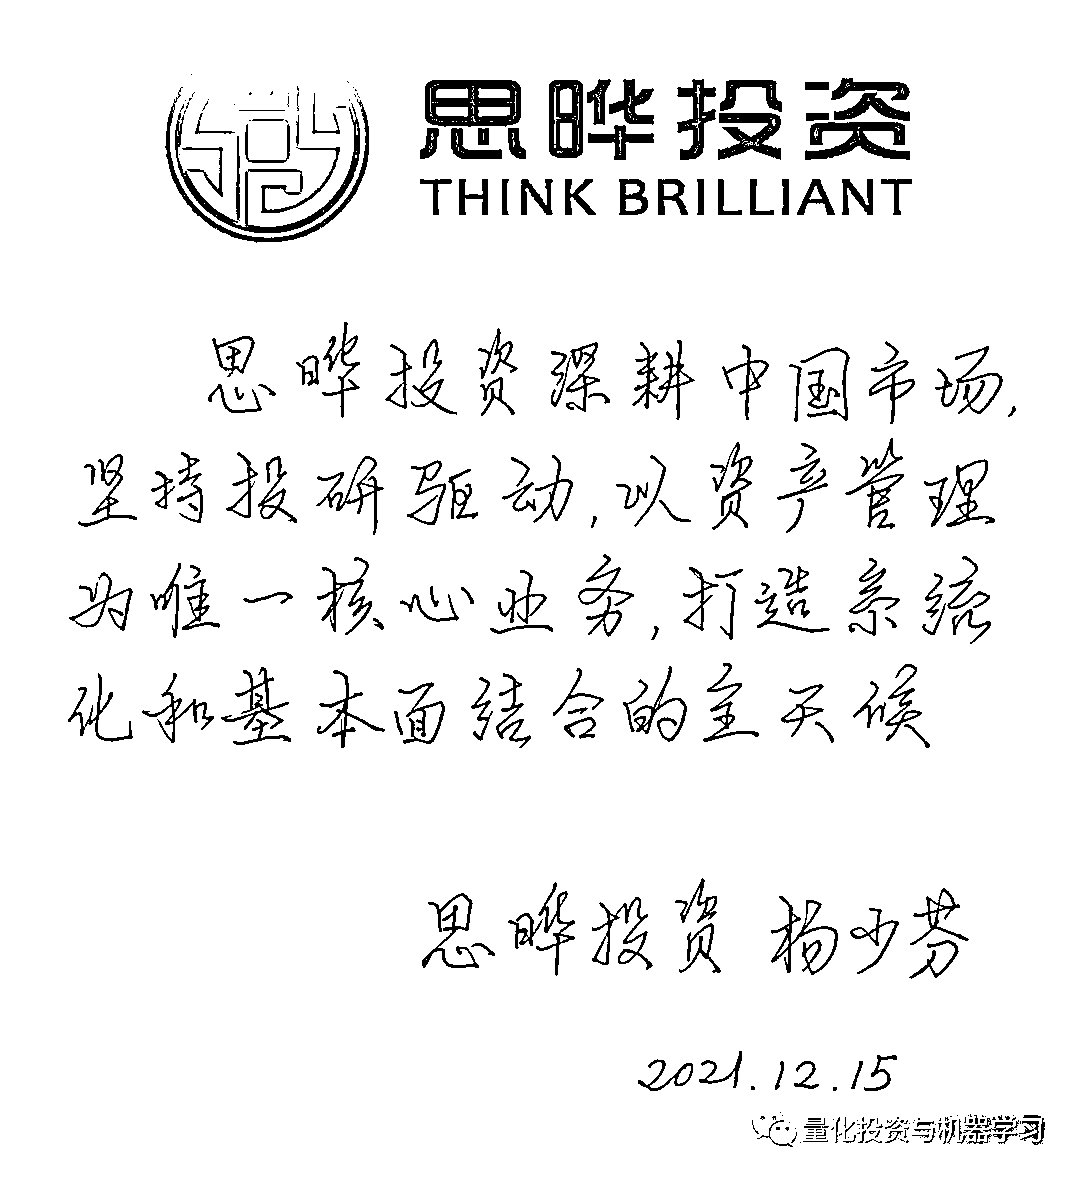 思晔投资
THINK BRILLIANT
思晔投资深耕中国市场,
坚持投研驱动,以资产管理
为唯一核心业务,打造系统
化和基本面结合的全天候
思晔投资 杨少芬
2021.12.15
量化投资与机器学习